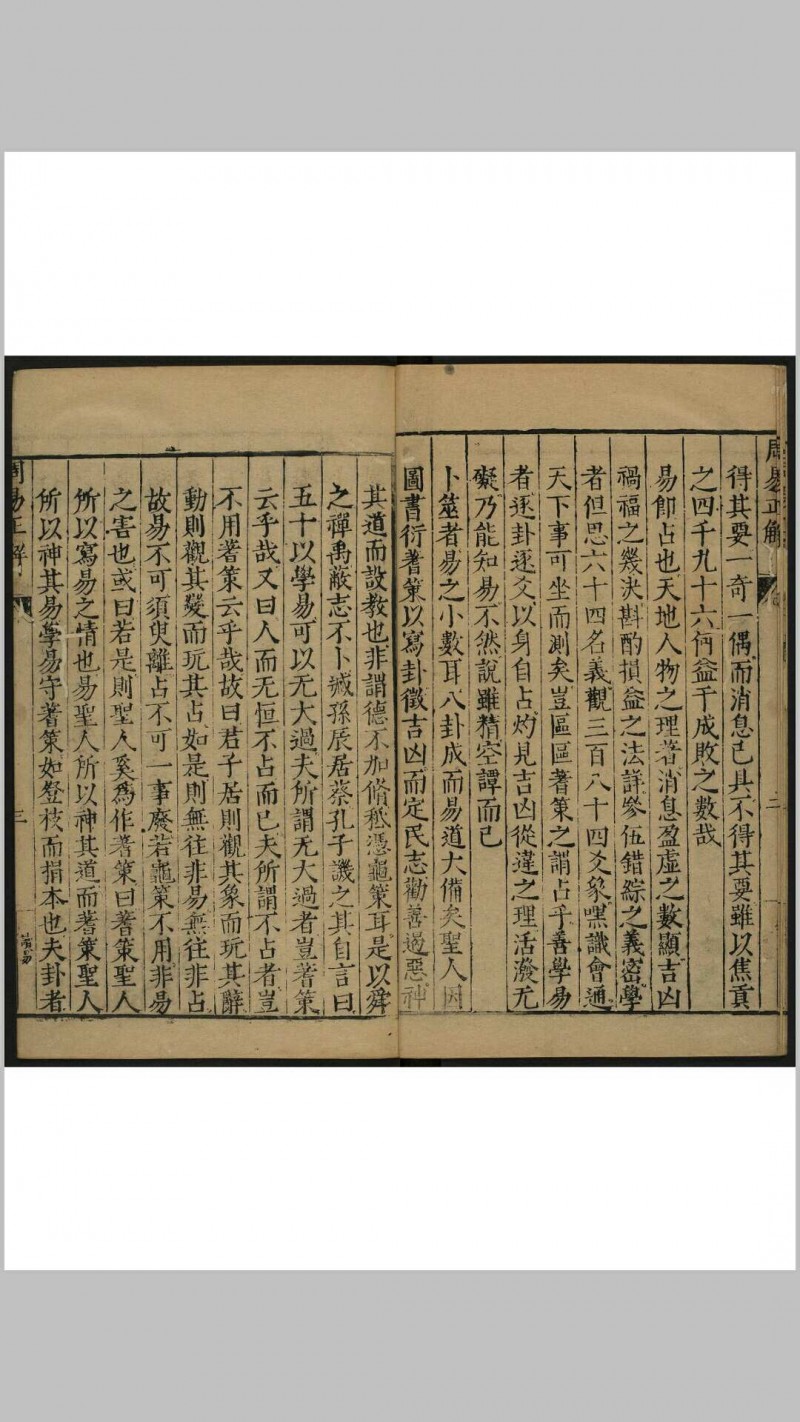 周易正解
二
得其要一奇一偶而消息已具不得其要雖以焦貢
之四千九十六何益于成敗之數哉
易即占也天地人物之理著消息盈虛之數顯吉凶
禍福之幾決斟酌損益之法詳參伍錯綜之義密學
者但思六十四名義觀三百八十四爻象嘿識會通
天下事可坐而測矣豈區區蓍策之謂占乎善學易
者逐卦逐爻以身自占灼見吉凶從違之理活潑无
礙乃能知易不然說雖精空譚而已
卜筮者易之小數耳八卦成而易道大備矣聖人因
圖書衍蓍策以寫卦徵吉凶而定民志勸善遏惡神
其道而設教也非謂德不加脩秪憑龜策耳是以舜
之禪禹蔽志不卜臧孫辰居蔡孔子譏之其自言曰
五十以學易可以无大過夫所謂无大過者豈蓍策
云乎哉又曰人而无恒不占而已夫所謂不占者豈
不用蓍策云乎哉故曰君子居則觀其象而玩其辭
動則觀其變而玩其占如是則無往非易無往非占
故易不可須臾離占不可一事廢若龜策不用非易
之害也或曰若是則聖人奚為作蓍策曰蓍策聖人
所以寫易之情也易聖人所以神其道而蓍策聖人
所以神其易學易守蓍策如登枝而捐本也夫卦者
周易正解
三